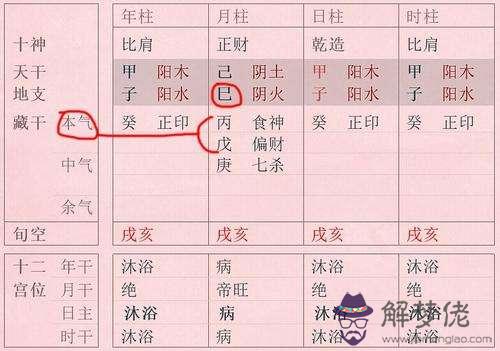 年柱 月柱 日柱 时柱
十神 比肩 正财 乾造 比肩
天干 甲 阳木 己 阴土 甲 阳木 甲 阳木
地支 子 阳水 巳 阴火 子 阳水 子 阳水
藏干 本气 癸 正印 丙 食神 癸 正印 癸 正印
戊 偏财
中气 庚 七杀
余气
旬空 戌亥 戌亥 戌亥 戌亥
十二 年干 沐浴 病 沐浴 沐浴
宫位 月干 绝 帝旺 绝 绝
日主 沐浴 病 沐浴 沐浴
时干 沐浴 病 沐浴 沐浴
解梦佬